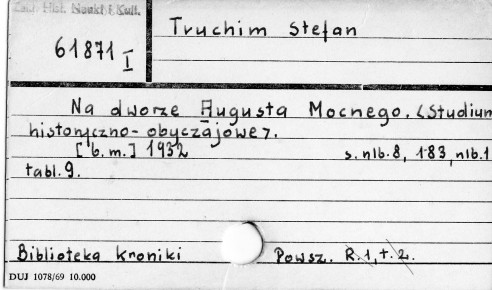 Zakł. Hist. Nauki i Kult.
61871
I
Truchim Stefan
Na dworze Augusta Mocnego. <Studium
historyczno-obyczajowe>.
[b.m.] 1932
s. nlb. 8, 183, nlb. 1
tabl. 9.
Biblioteka Kroniki
Powsz. R. 1, t. 2.
DUJ 1078/69 10.000